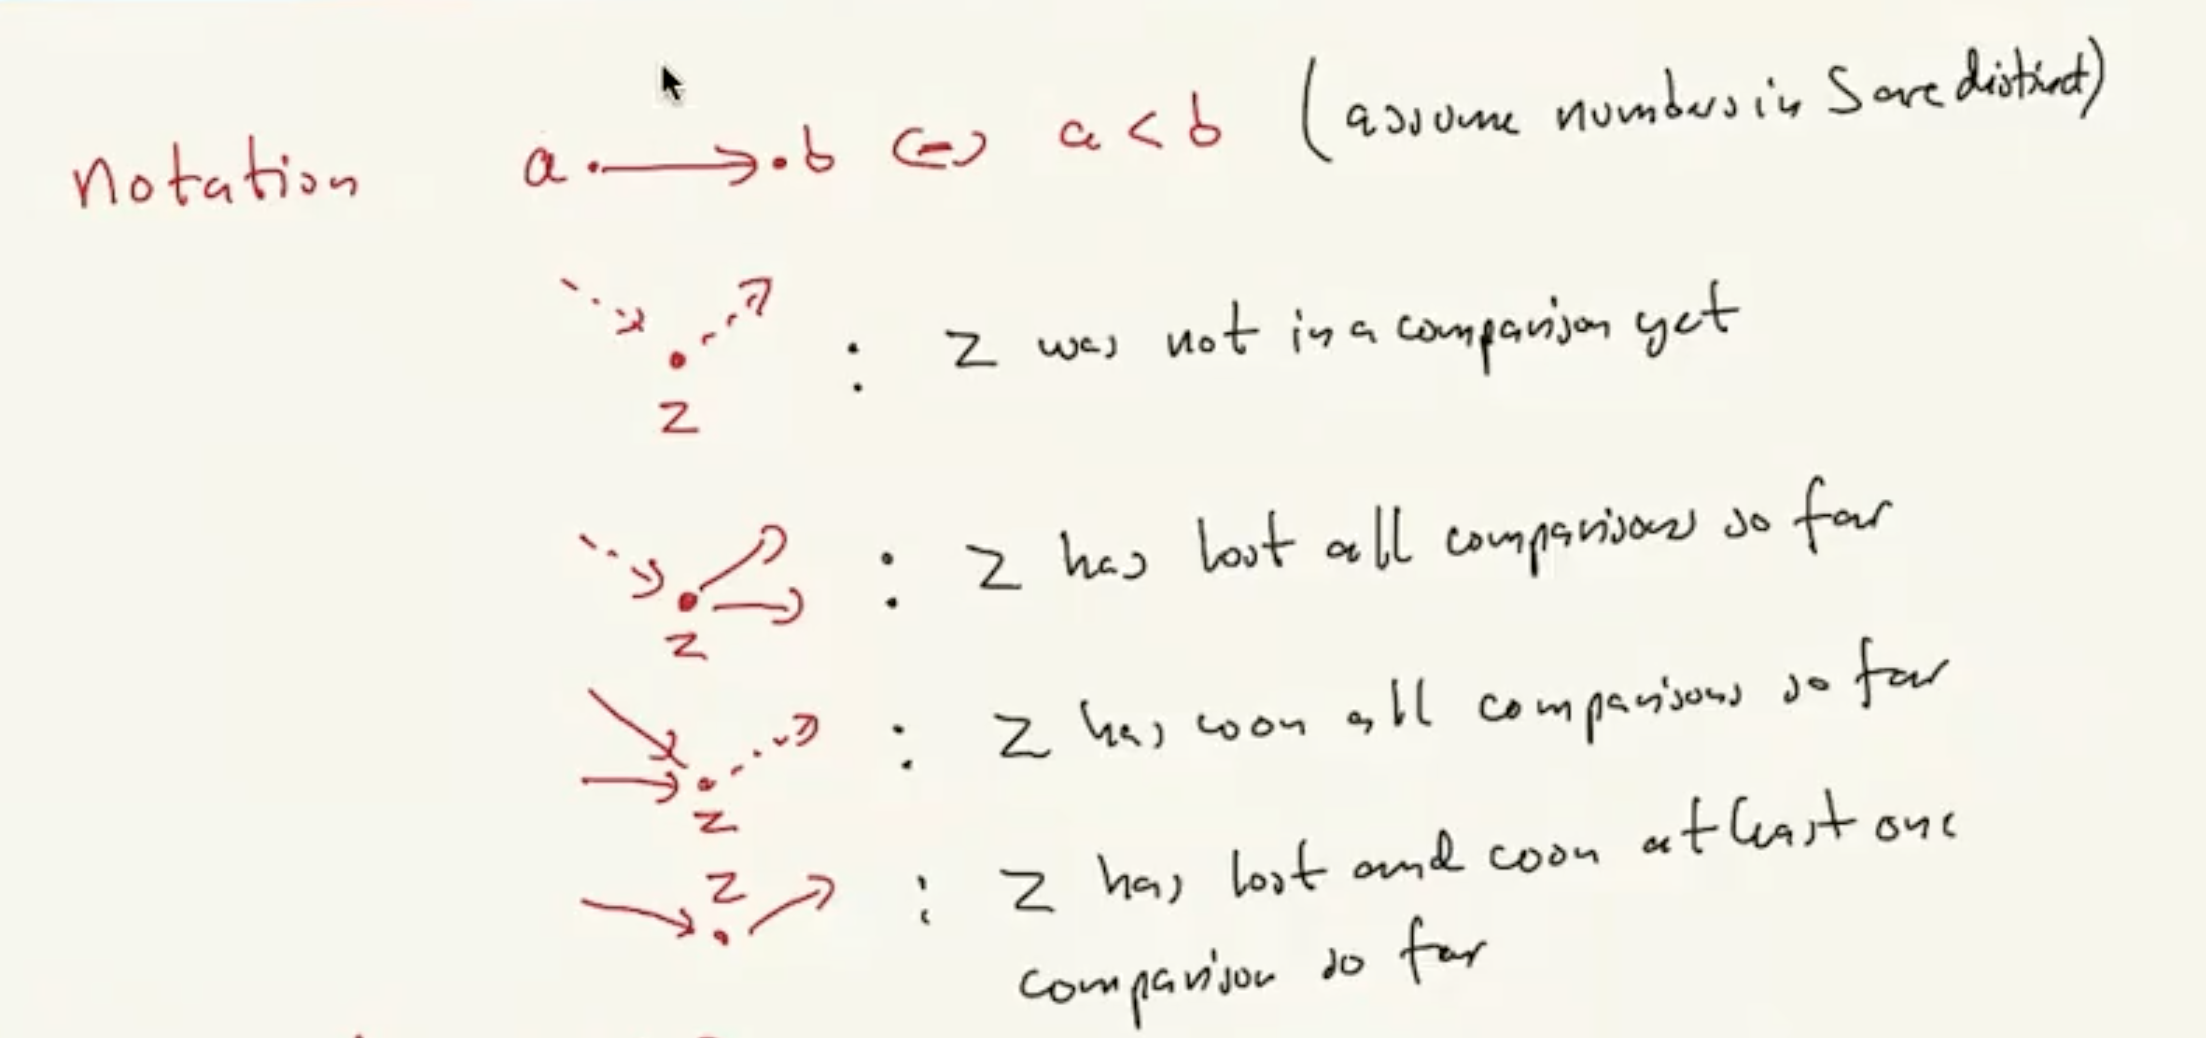 notation a → b ⇔ a < b (assume numbers in S are distinct)
z : z was not in a comparison yet
z : z has lost all comparisons so far
z : z has won all comparisons so far
z : z has lost and won at least one
comparison so far